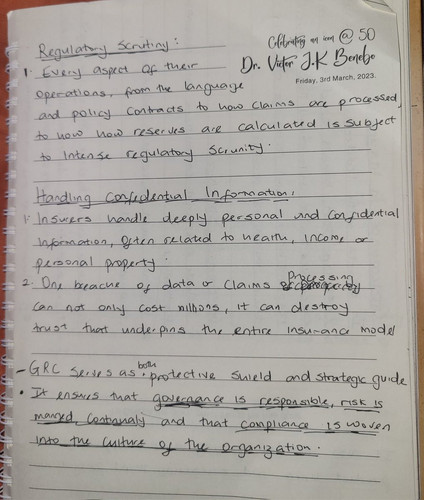 Celebrating an icon @ 50
Dr. Victor J.K Benebo
Friday, 3rd March, 2023.
Regulatory Scrutiny:
1. Every aspect of their
operations, from the language
and policy contracts to how claims are processed,
to how how reserves are calculated is subject
to intense regulatory scrunity.
Handling Confidential Information.
1. Insurers handle deeply personal and confidential
information, often related to health, income or
personal property.
2. One breache of data or claims Processing
can not only cost millions, it can destroy
trust that underpins the entire insurance model
- GRC serves as both protective shield and strategic guide
• It ensures that governance is responsible, risk is
manged, continualy and that compliance is woven
into the culture of the organization.